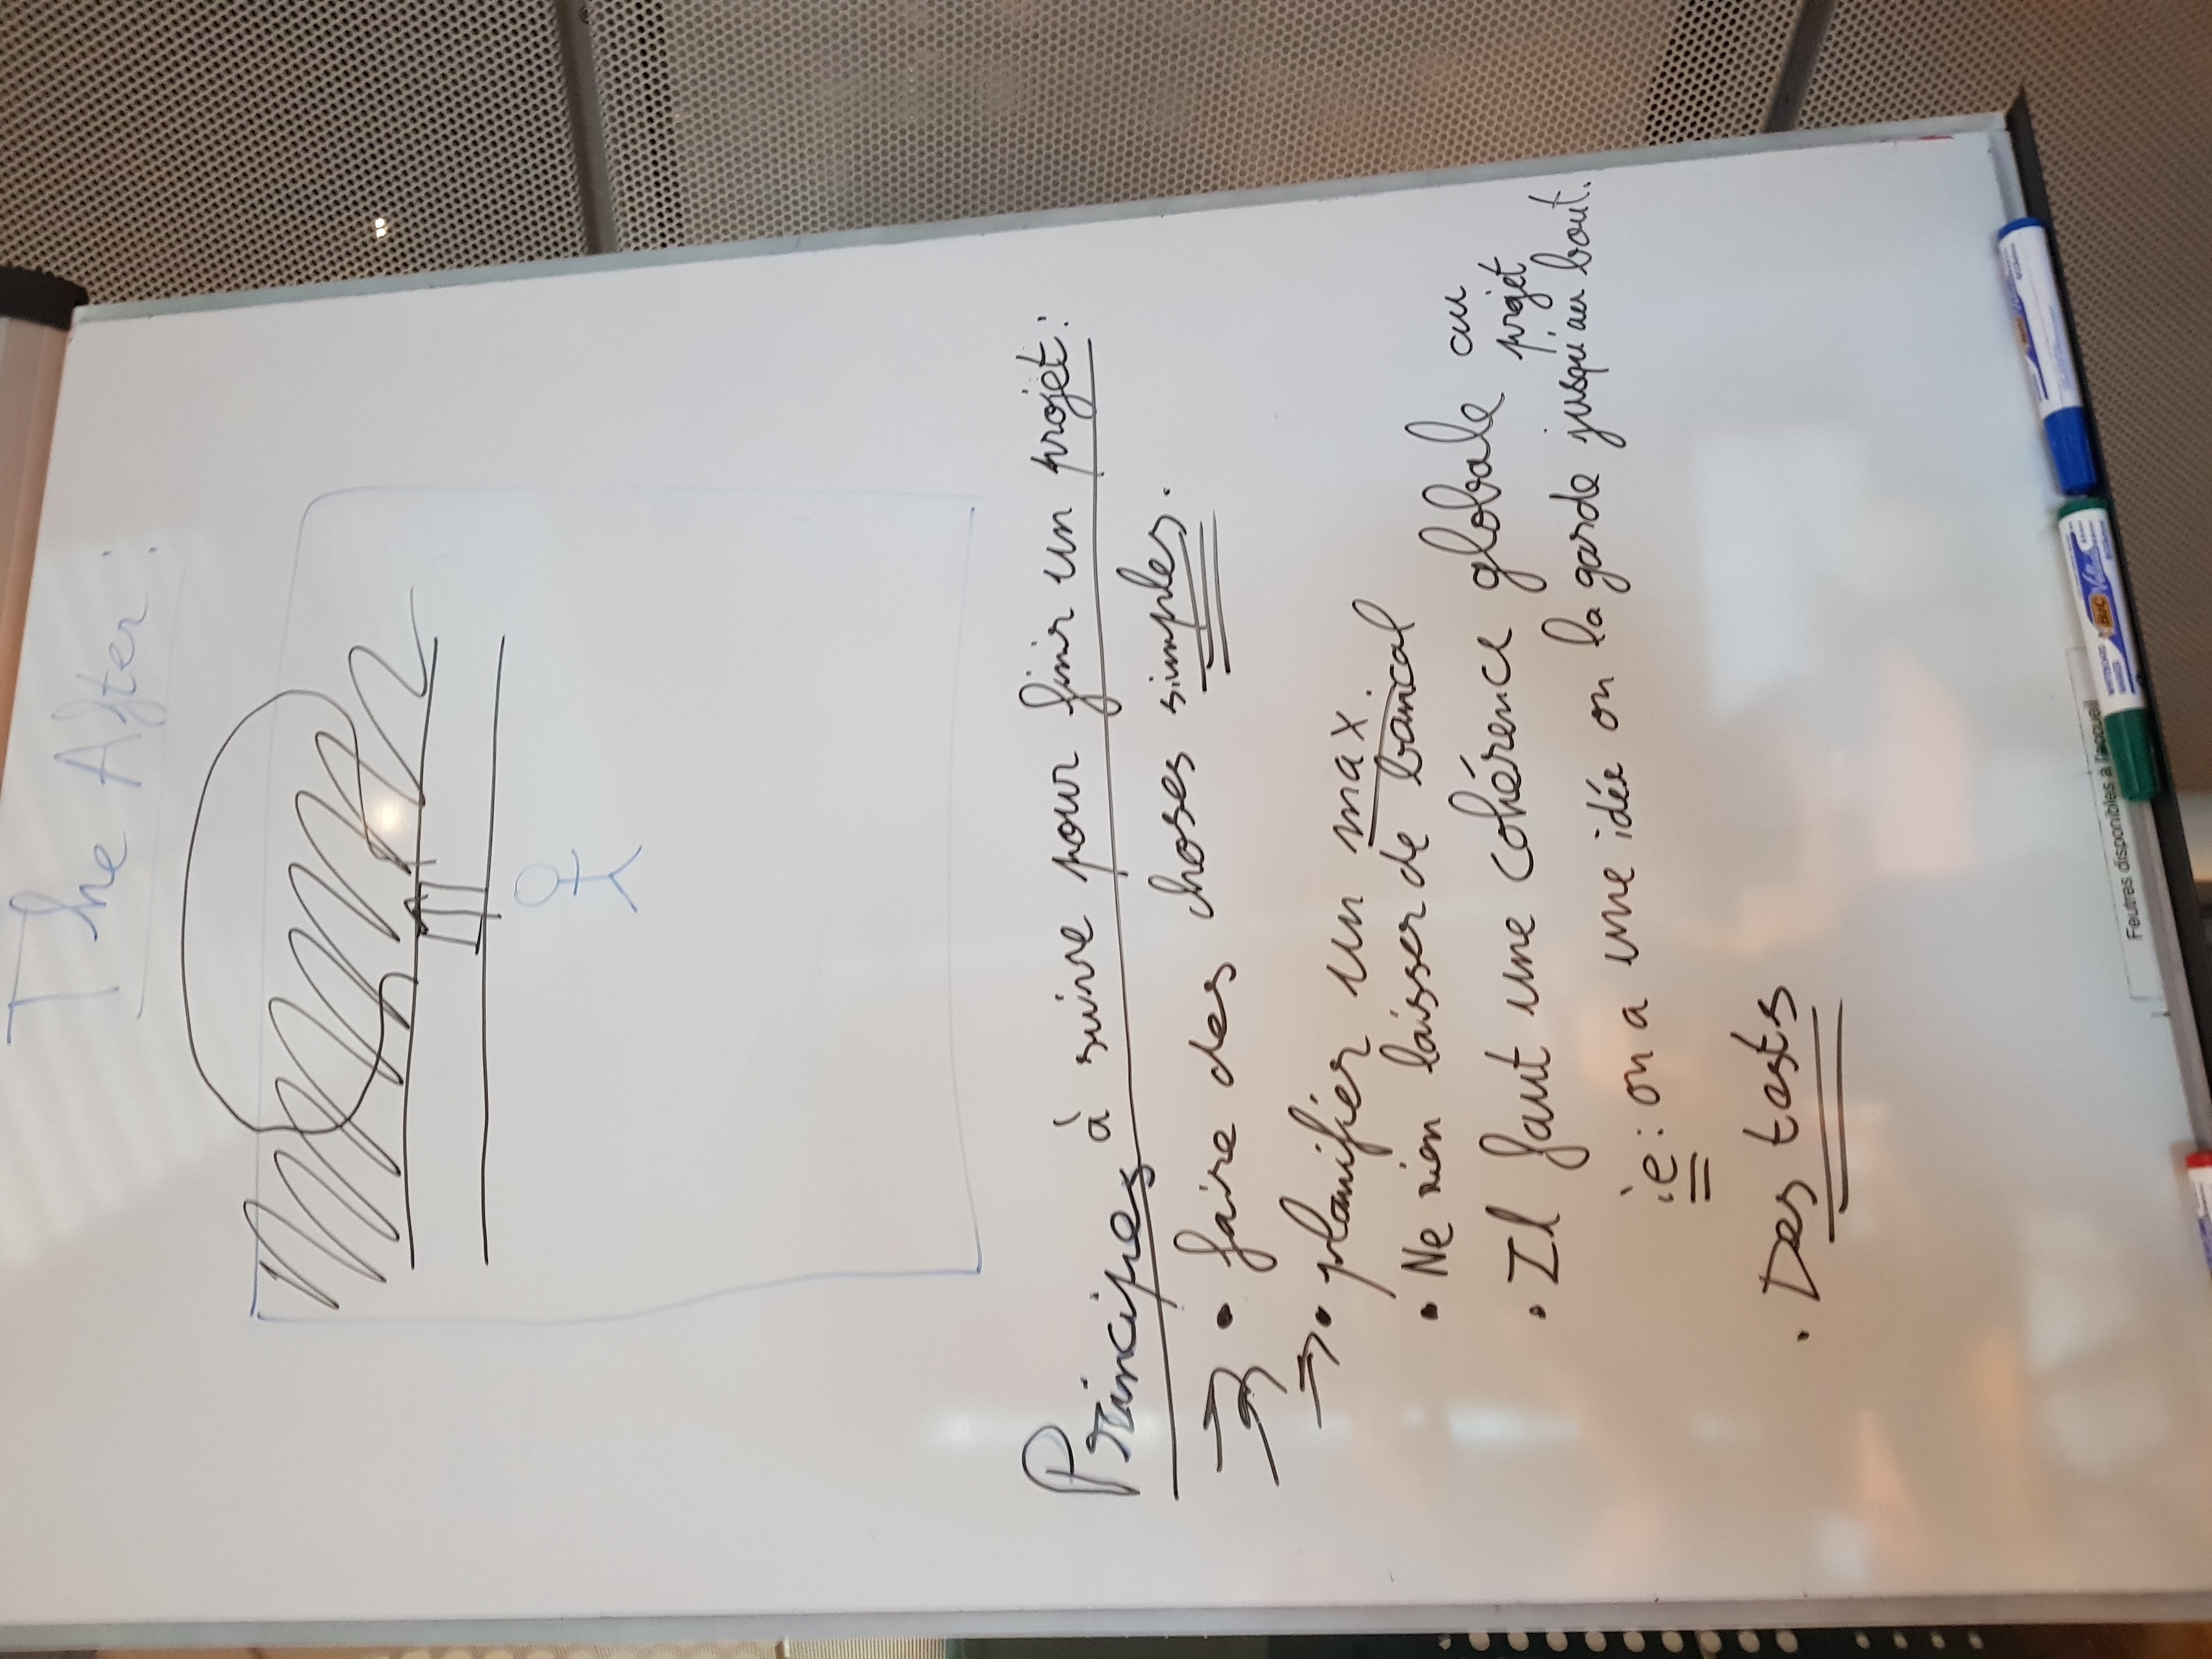 The After :
Principes à suivre pour finir un projet :
• faire des choses simples.
• planifier un max.
• Ne rien laisser de bancal
• Il faut une cohérence globale au
projet
ie : on a une idée on la garde jusqu'au bout.
• Des tests
Feutres disponibles à l'accueil
WHITEBOARD
MARKER
BIC Velleda